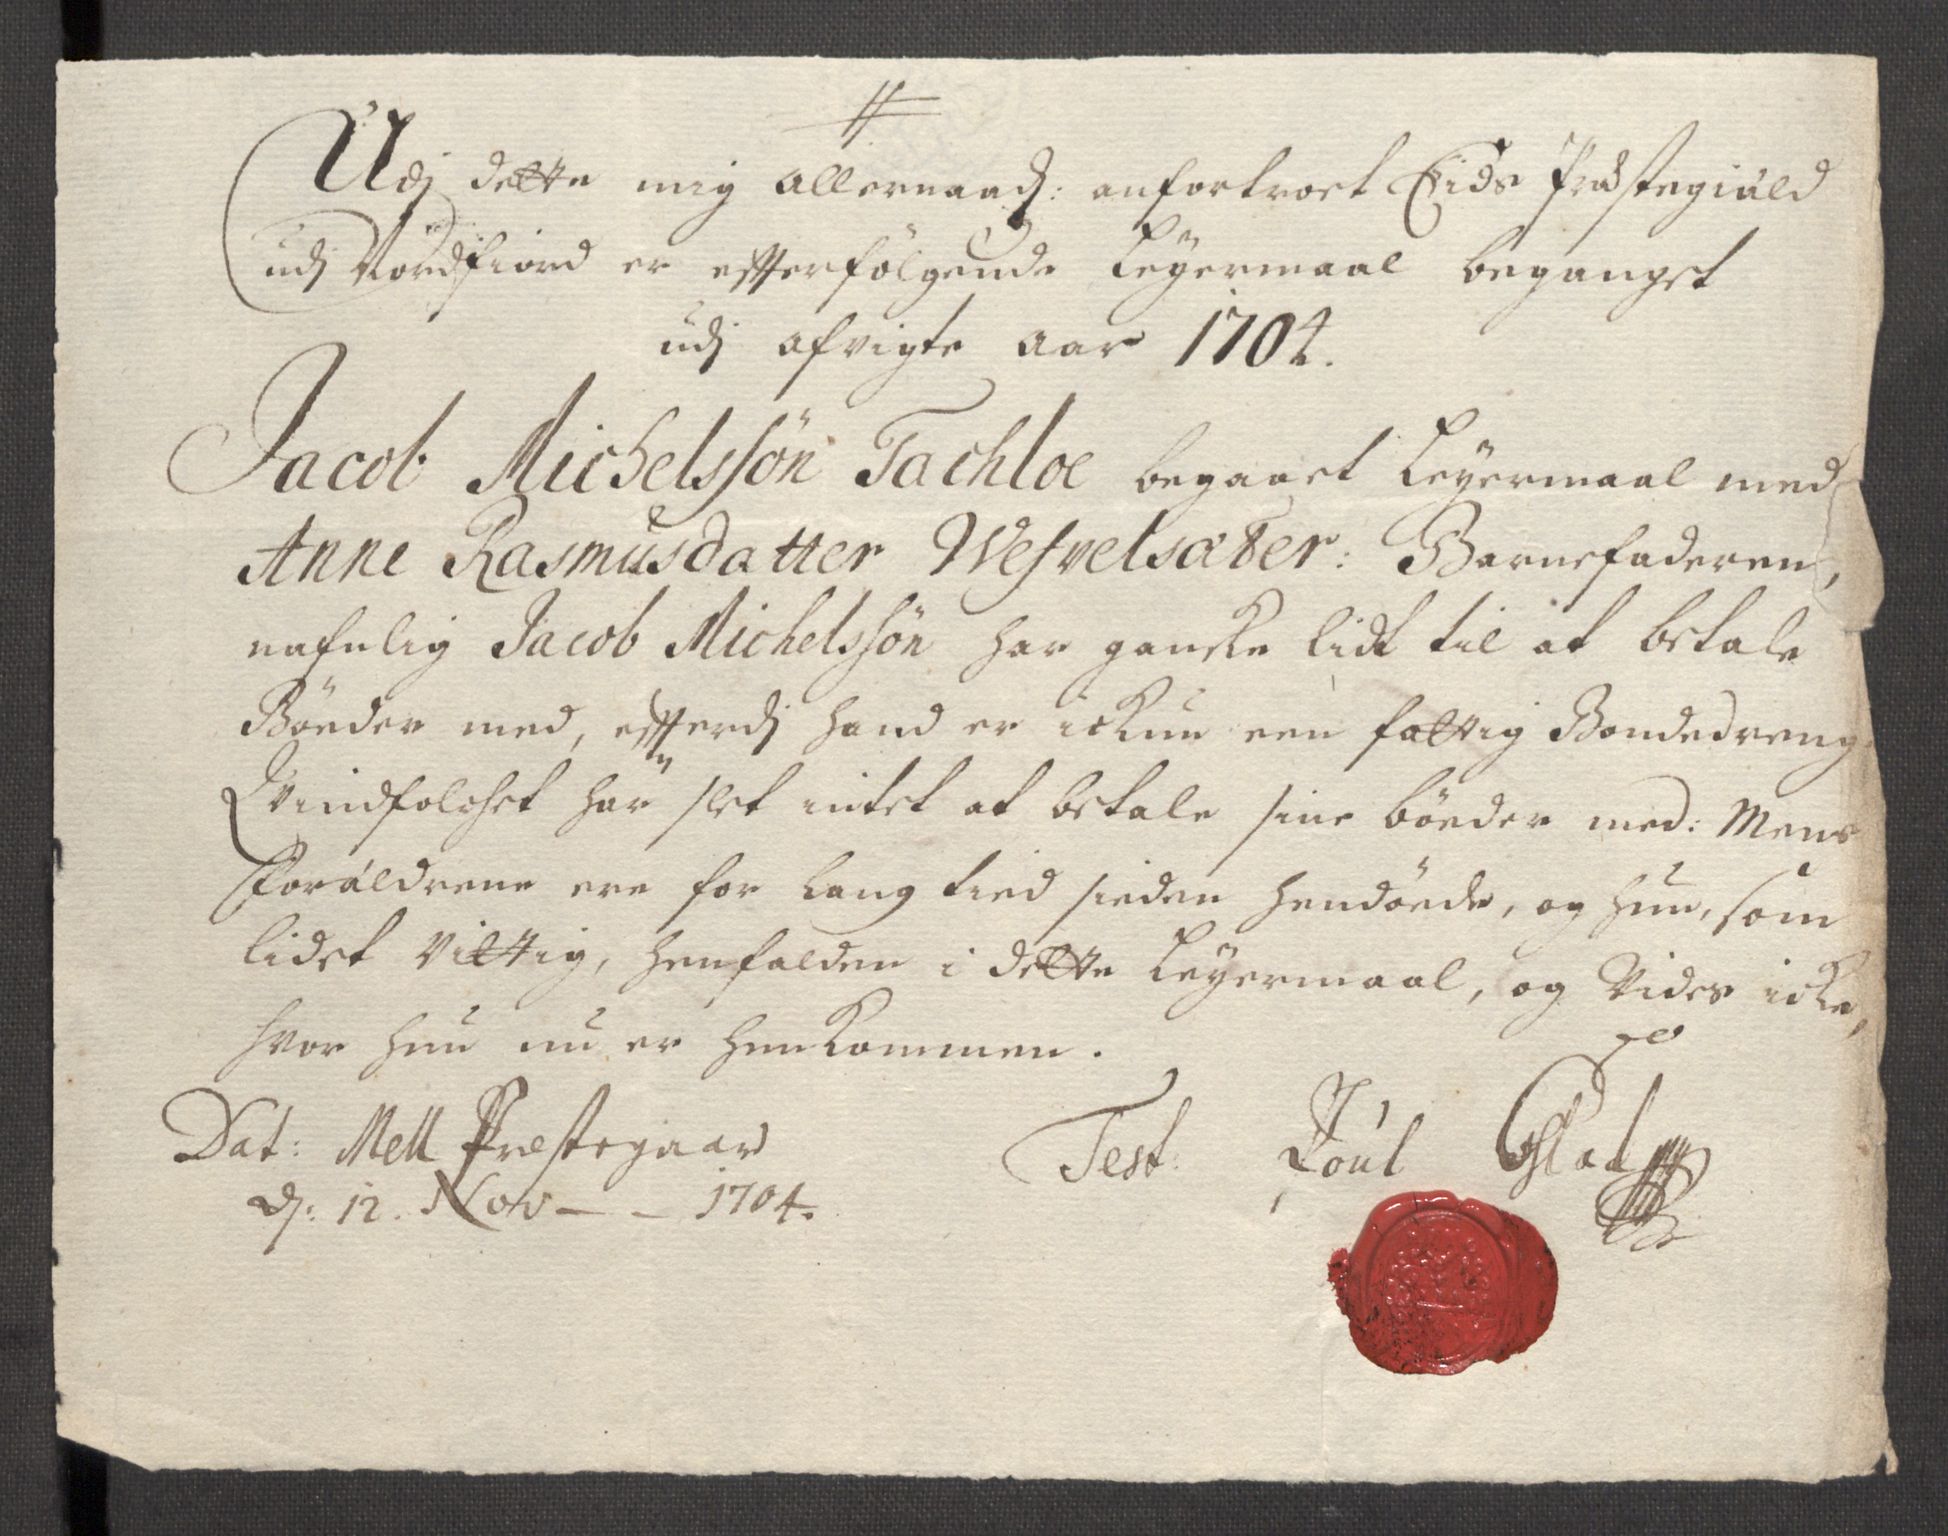 Udj dette mig allernaadj: anfortroet Eids Præstegiæld
udj Nordfiord er effterfölgende Leyermaal beganget
udj afvigte aar 1704.
Jacob Michelssön Tachloe begaaet Leyermaal med
Anne Rasmusdatter Wefvelsæter: Barnefaderen,
nafnlig Jacob Michelssön har ganske lidt til at betale
Böeder med, effterdj hand er ickun een fattig Bondedreng
Qvindfolchet har slet intet at betale sine böeder med: Mens
Forældrene ere for lang tied sieden hendöede, og hun, som
lidet vittig, henfalden i dette Leyermaal, og vides icke,
hvor hun nu er henkommen.
Dat: Mell Præstegaar
dj: 12. Nov — — 1704.
Test: Poul